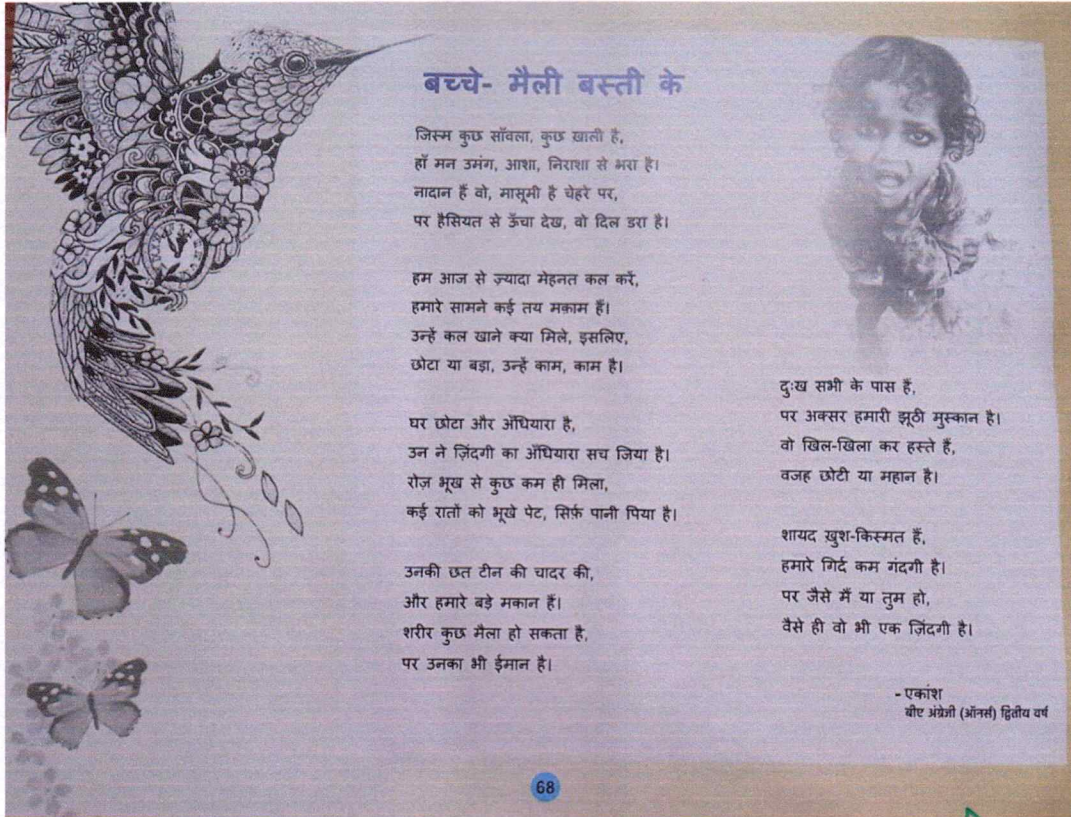 बच्चे- मैली बस्ती के
जिस्म कुछ साँवला, कुछ ख़ाली है,
हाँ मन उमंग, आशा, निराशा से भरा है।
नादान हैं वो, मासूमी है चेहरे पर,
पर हैसियत से ऊँचा देख, वो दिल डरा है।
हम आज से ज़्यादा मेहनत कल करें,
हमारे सामने कई तय मक़ाम हैं।
उन्हें कल खाने क्या मिले, इसलिए,
छोटा या बड़ा, उन्हें काम, काम है।
घर छोटा और अँधियारा है,
उन ने ज़िंदगी का अँधियारा सच जिया है।
रोज़ भूख से कुछ कम ही मिला,
कई रातों को भूखे पेट, सिर्फ़ पानी पिया है।
उनकी छत टीन की चादर की,
और हमारे बड़े मकान हैं।
शरीर कुछ मैला हो सकता है,
पर उनका भी ईमान है।
दुःख सभी के पास हैं,
पर अक्सर हमारी झूठी मुस्कान है।
वो खिल-खिला कर हस्ते हैं,
वजह छोटी या महान है।
शायद ख़ुश-किस्मत हैं,
हमारे गिर्द कम गंदगी है।
पर जैसे मैं या तुम हो,
वैसे ही वो भी एक ज़िंदगी है।
- एकांश
बीए अंग्रेजी (ऑनर्स) द्वितीय वर्ष
68